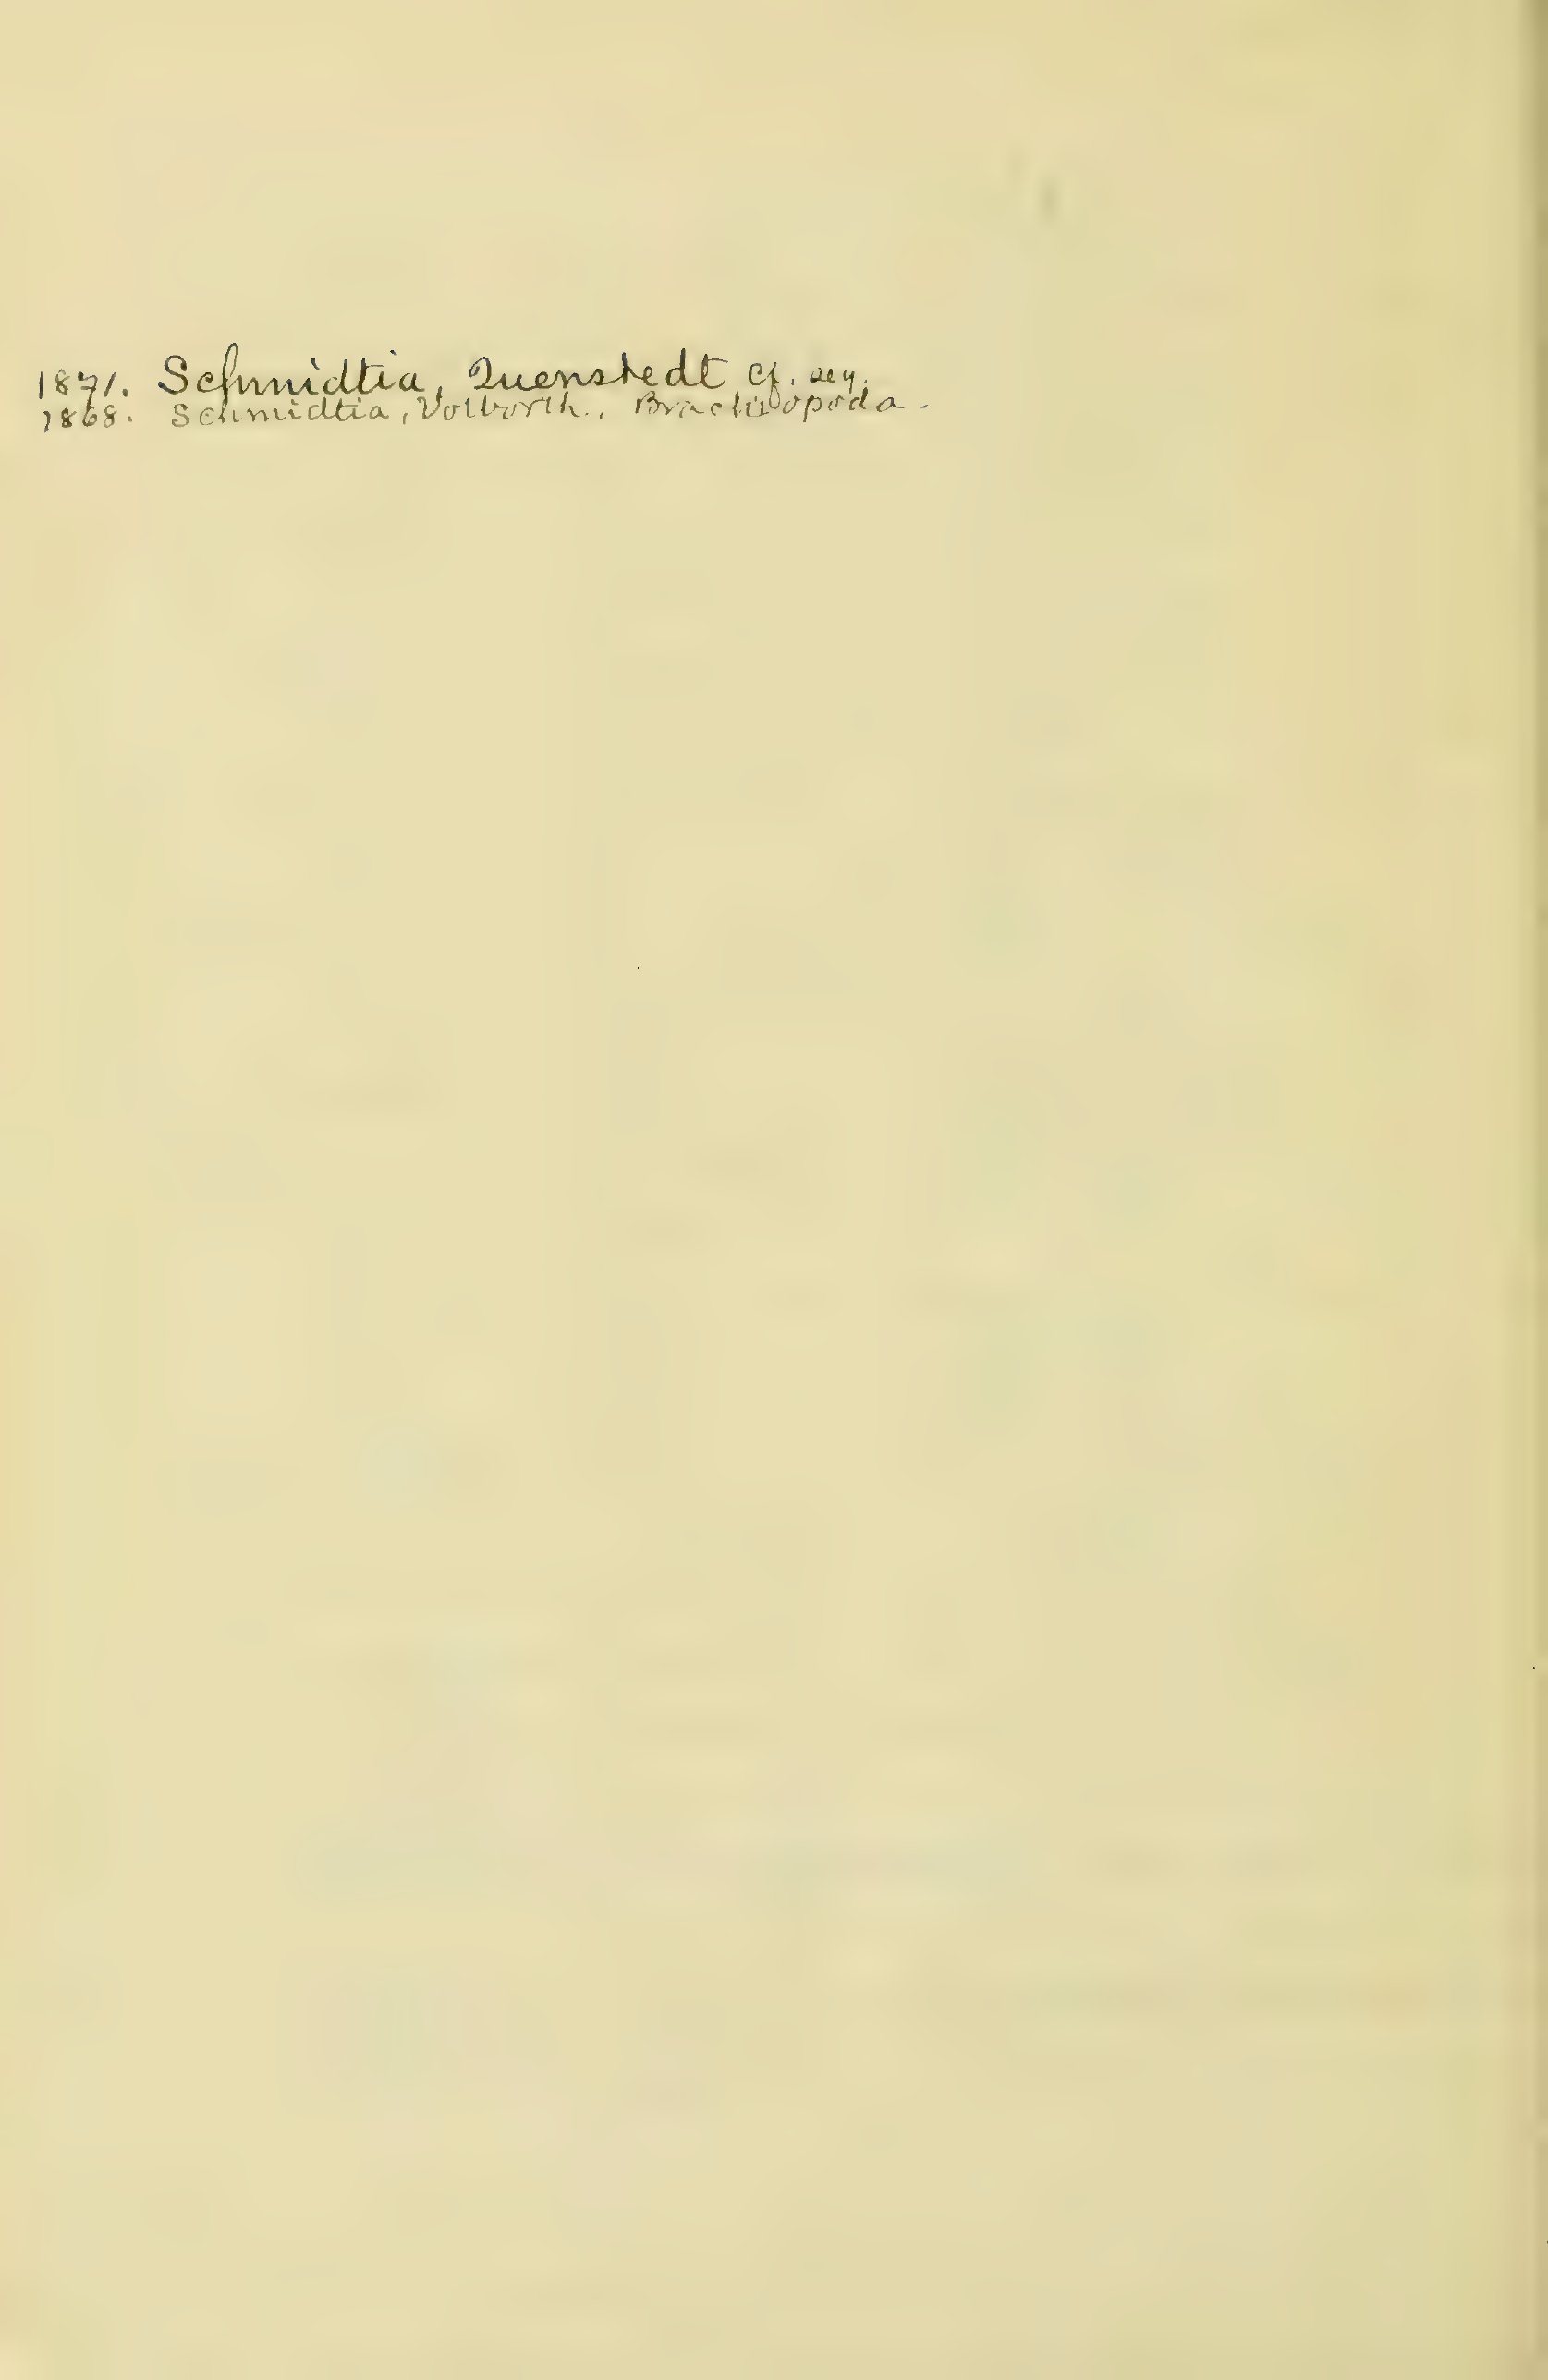 1871. Schmidtia, Quenstedt cf. seq.
1868. Schmidtia, Volborth. Brachiopoda.